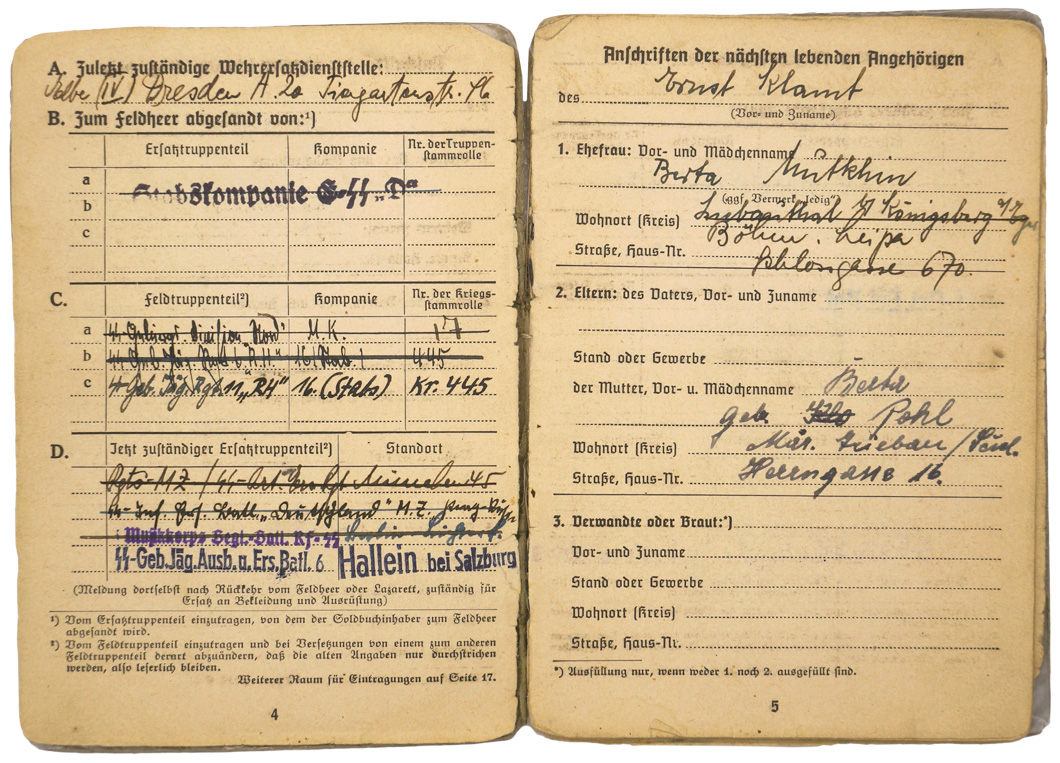 A. Zuletzt zuständige Wehrersatzdienststelle:
(IV) Dresden A. 20 Tiergartenstr. 46
B. Zum Feldheer abgesandt von:¹)
Ersatztruppenteil Kompanie Nr. der Truppen-
stammrolle
a
Stabskompanie
b
c
C. Feldtruppenteil²) Kompanie Nr. der Kriegs-
stammrolle
a ᛋᛋ Division Nord" M.K. 17
b ᛋᛋ 445
c ᛋᛋ-Geb. Jäg. Rgt. 11 „RH" 16. (Stabs) Kr. 445
D. Jetzt zuständiger Ersatztruppenteil²) Standort
München 45
„Deutschland" M.Z.
Musikkorps Begl.-Batl. Rf-ᛋᛋ Berlin
ᛋᛋ-Geb.Jäg.Ausb.u.Ers.Batl. 6 Hallein bei Salzburg
(Meldung dortselbst nach Rückkehr vom Feldheer oder Lazarett, zuständig für
Ersatz an Bekleidung und Ausrüstung)
¹) Vom Ersatztruppenteil einzutragen, von dem der Soldbuchinhaber zum Feldheer
abgesandt wird.
²) Vom Feldtruppenteil einzutragen und bei Versetzungen von einem zum anderen
Feldtruppenteil derart abzuändern, daß die alten Angaben nur durchstrichen
werden, also leserlich bleiben.
Weiterer Raum für Eintragungen auf Seite 17.
4
Anschriften der nächsten lebenden Angehörigen
des Ernst Klamt
(Vor- und Zuname)
1. Ehefrau: Vor- und Mädchenname
Berta
(ggf. Vermerk „ledig")
Wohnort (Kreis) Königsberg a/Eger
Böhm. Leipa
Straße, Haus-Nr.
Schlossgasse 670.
2. Eltern: des Vaters, Vor- und Zuname
Stand oder Gewerbe
der Mutter, Vor- u. Mädchenname Berta
geb. Pohl
Wohnort (Kreis) Mär. Trübau/Sud.
Straße, Haus-Nr. Herrngasse 16.
3. Verwandte oder Braut:*)
Vor- und Zuname
Stand oder Gewerbe
Wohnort (Kreis)
Straße, Haus-Nr.
*) Ausfüllung nur, wenn weder 1. noch 2. ausgefüllt sind.
5